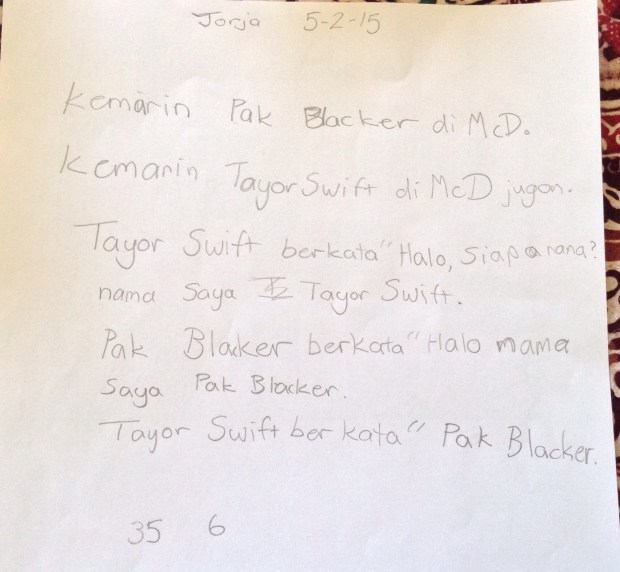 Jorja 5-2-15
Kemarin Pak Blacker di McD.
Kemarin Tayor Swift di McD jugon.
Tayor Swift berkata "Halo, Siapa nana?
nama Saya Tayor Swift.
Pak Blacker berkata "Halo mama
Saya Pak Blacker.
Tayor Swift ber kata " Pak Blacker.
35 6